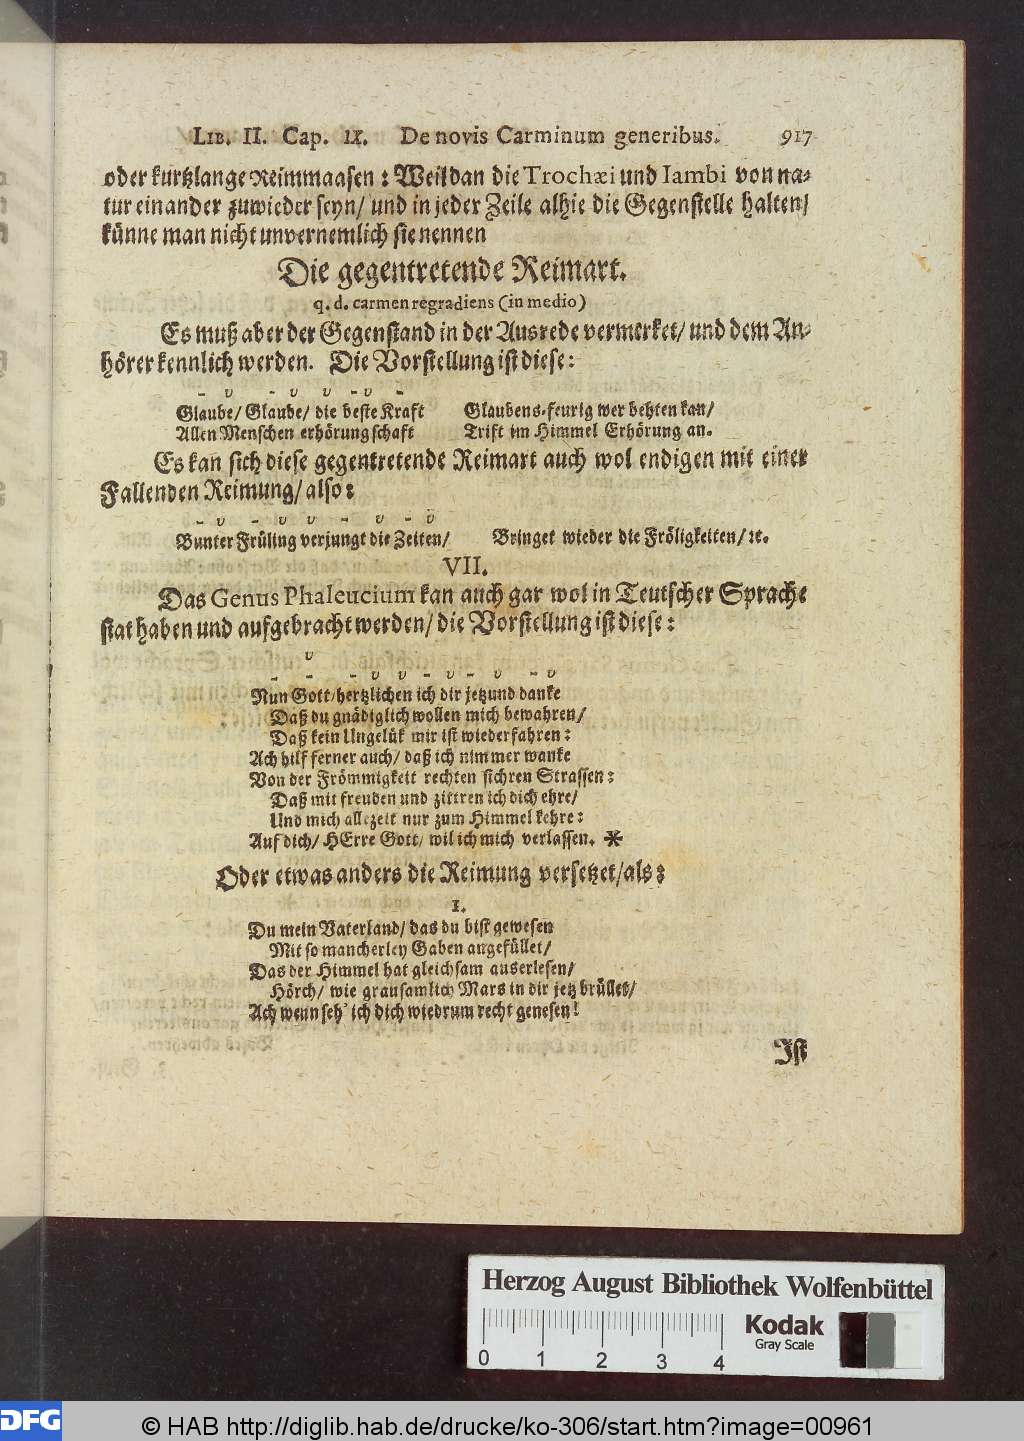 LIB. II. Cap. IX. De novis Carminum generibus. 917
oder kurtzlange Reimmaasen: Weil dan die Trochæi und Iambi von na-
tur einander zuwieder seyn/ und in jeder Zeile alhie die Gegenstelle halten/
künne man nicht unvernemlich sie nennen
Die gegentretende Reimart.
q. d. carmen regradiens (in medio)
Es muß aber der Gegenstand in der Ausrede vermerket/ und dem An-
hörer kennlich werden. Die Vorstellung ist diese:
– υ – υ υ – υ –
Glaube/ Glaube/ die beste Kraft Glaubens-feurig wer behten kan/
Allen Menschen erhörung schaft Trift im Himmel Erhörung an.
Es kan sich diese gegentretende Reimart auch wol endigen mit einer
Fallenden Reimung/ also:
– υ – υ υ – υ – υ
Bunter Früling verjungt die Zeiten/ Bringet wieder die Fröligkeiten/ ꝛc.
VII.
Das Genus Phaleucium kan auch gar wol in Teutscher Sprache
stat haben und aufgebracht werden/ die Vorstellung ist diese:
υ
– – – υ υ – υ – υ – υ
Nun Gott/ hertzlichen ich dir jetzund danke
Daß du gnädiglich wollen mich bewahren/
Daß kein Ungelük mir ist wiederfahren:
Ach hilf ferner auch/ daß ich nimmer wanke
Von der Frömmigkeit rechten sichren Strassen:
Daß mit freuden und zittren ich dich ehre/
Und mich allezeit nur zum Himmel kehre:
Auf dich/ HErre Gott/ wil ich mich verlassen. *
Oder etwas anders die Reimung versetzet/ als:
I.
Du mein Vaterland/ das du bist gewesen
Mit so mancherley Gaben angefüllet/
Das der Himmel hat gleichsam auserlesen/
Hörch/ wie grausamlich Mars in dir jetz brülles/
Ach wenn seh' ich dich wiedrum recht genesen!
Ist
Herzog August Bibliothek Wolfenbüttel
Kodak
Gray Scale
0 1 2 3 4
DFG © HAB http://diglib.hab.de/drucke/ko-306/start.htm?image=00961